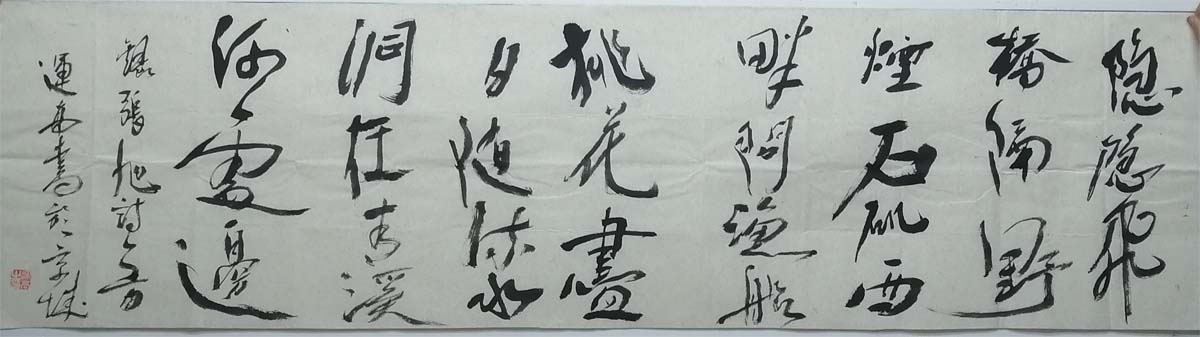 隐隐飛
橋隔野
煙石矶西
畔問漁船
桃花盡
日随流水
洞在青溪
何處邊
錄張旭詩一首
運書於京城